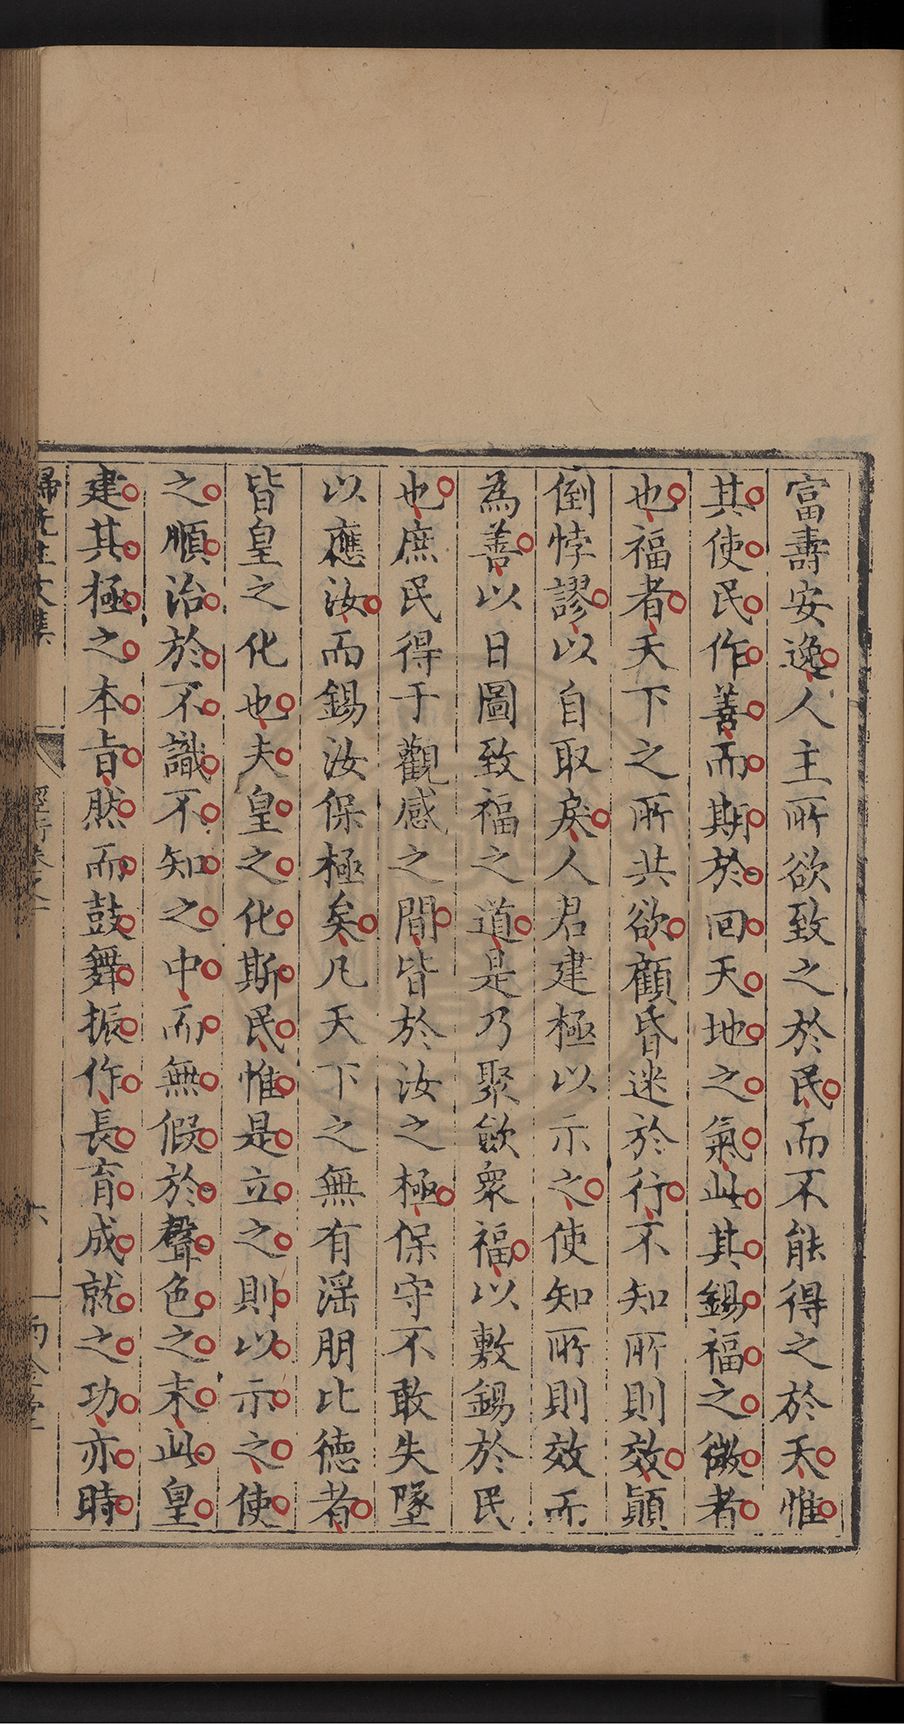 富壽安逸人主所欲致之於民而不能得之於天惟
其使民作善而期於回天地之氣此其錫福之微者
也福者天下之所共欲顧昏迷於行不知所則效顛
倒悖謬以自取戾人君建極以示之使知所則效而
為善以日圖致福之道是乃聚斂眾福以敷錫於民
也庶民得于觀感之間皆於汝之極保守不敢失墜
以應汝而錫汝保極矣凡天下之無有淫朋比德者
皆皇之化也夫皇之化斯民惟是立之則以示之使
之順治於不識不知之中而無假於聲色之末此皇
建其極之本旨然而鼓舞振作長育成就之功亦時
歸先生文集